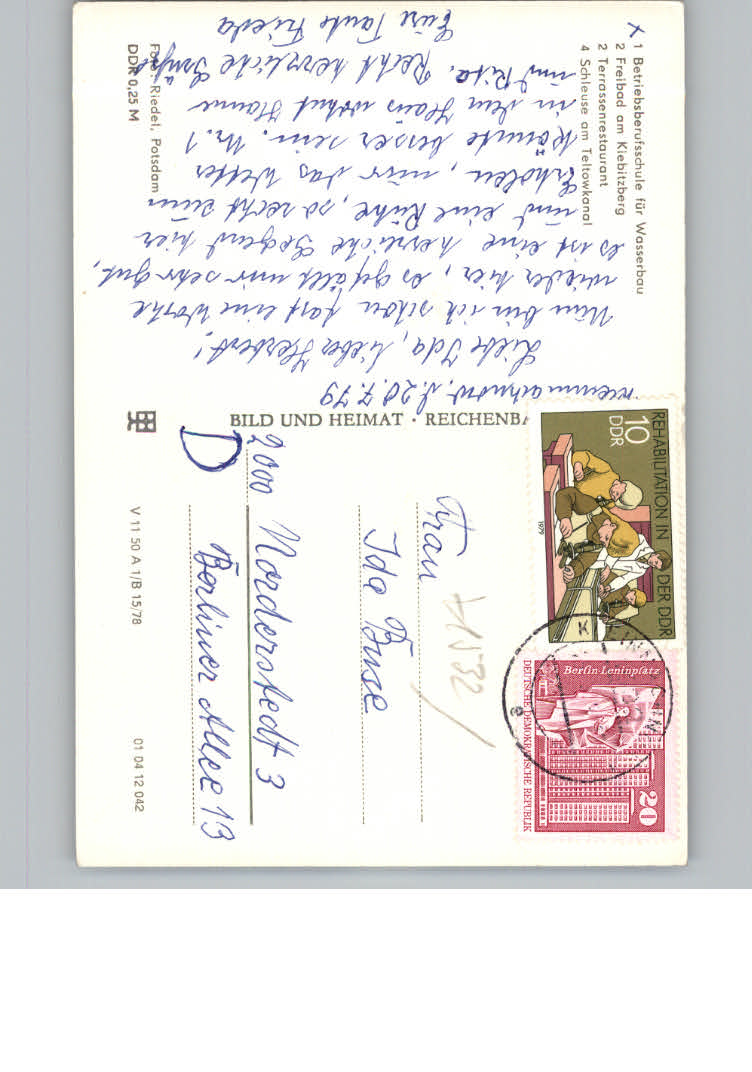 1 Betriebsberufsschule für Wasserbau
2 Freibad am Kiebitzberg
2 Terrassenrestaurant
4 Schleuse am Teltowkanal
x
d. 20.7.79
Liebe Ida, lieber Herbert!
Nun bin ich schon fast eine Woche
wieder hier, es gefällt mir sehr gut,
es ist eine herrliche Gegend hier
und eine Ruhe, so recht zum
Erholen, nur das Wetter
könnte besser sein. Nr. 1
in dem Haus wohnt Hanne
und Rita. Recht herzliche Grüße
Eure Tante Frieda
Foto: Riedel, Potsdam
DDR 0,25 M
BILD UND HEIMAT · REICHENBA
V 11 50 A 1/B 15/78
01 04 12 042
REHABILITATION IN
DER DDR
10
DDR
1979
Berlin-Leninplatz
20
DEUTSCHE DEMOKRATISCHE REPUBLIK
Frau
Ida Buse
2000 Norderstedt 3
Berliner Allee 13
D